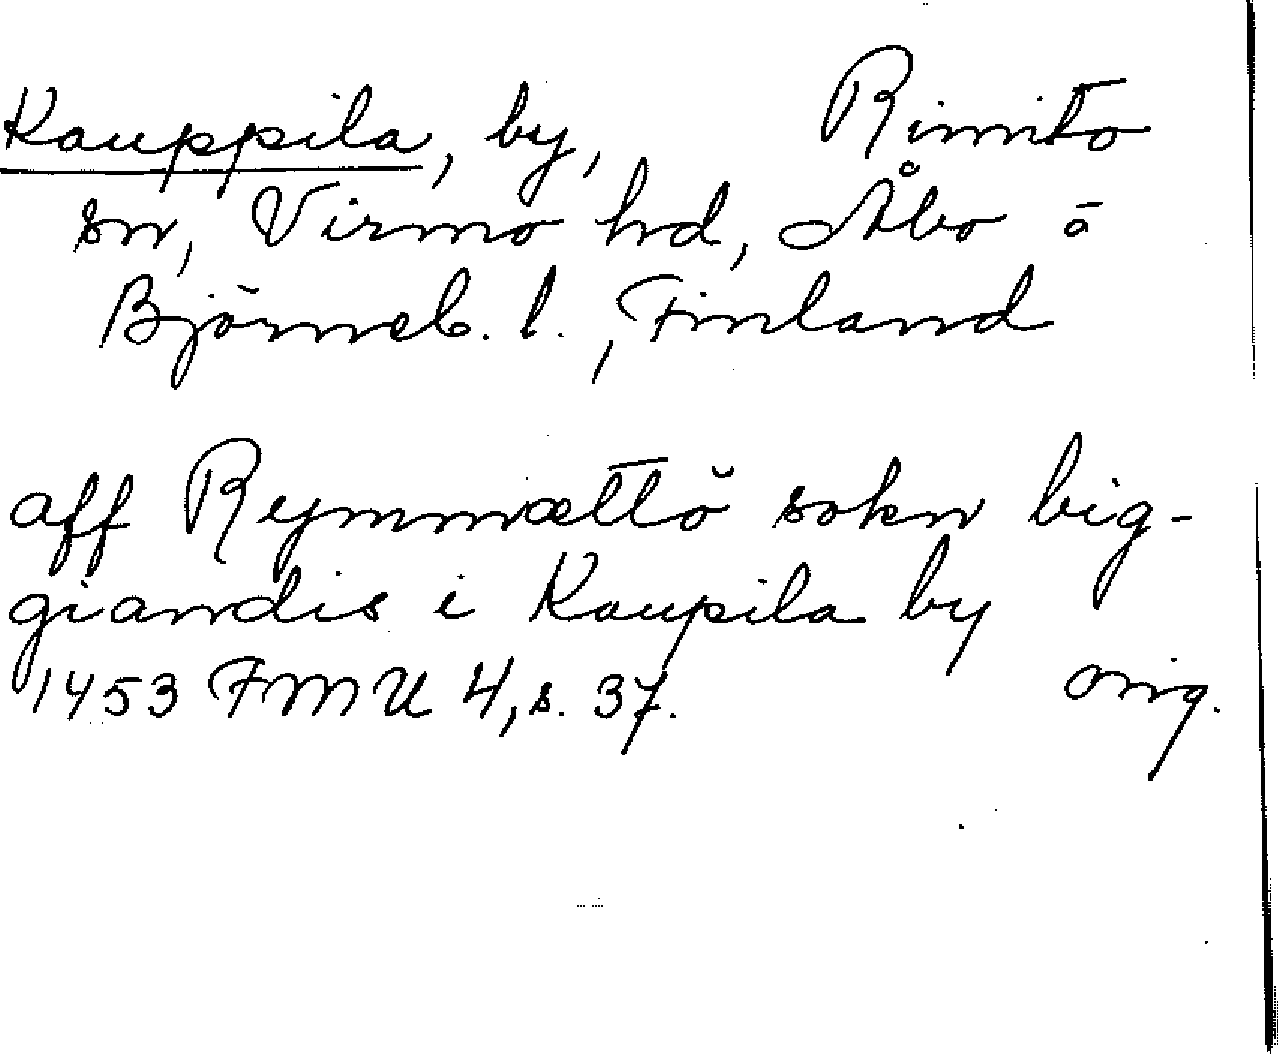 Kauppila, by, Rimito
sn, Virmo hd, Åbo o
Björneb. l., Finland
aff Rymmættö sokn big-
giandis i Kaupila by
1453 FMU 4, s. 37. orig.